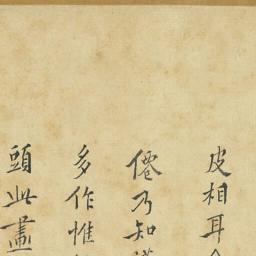 皮相耳
僊乃知
多作惟
頭此畫